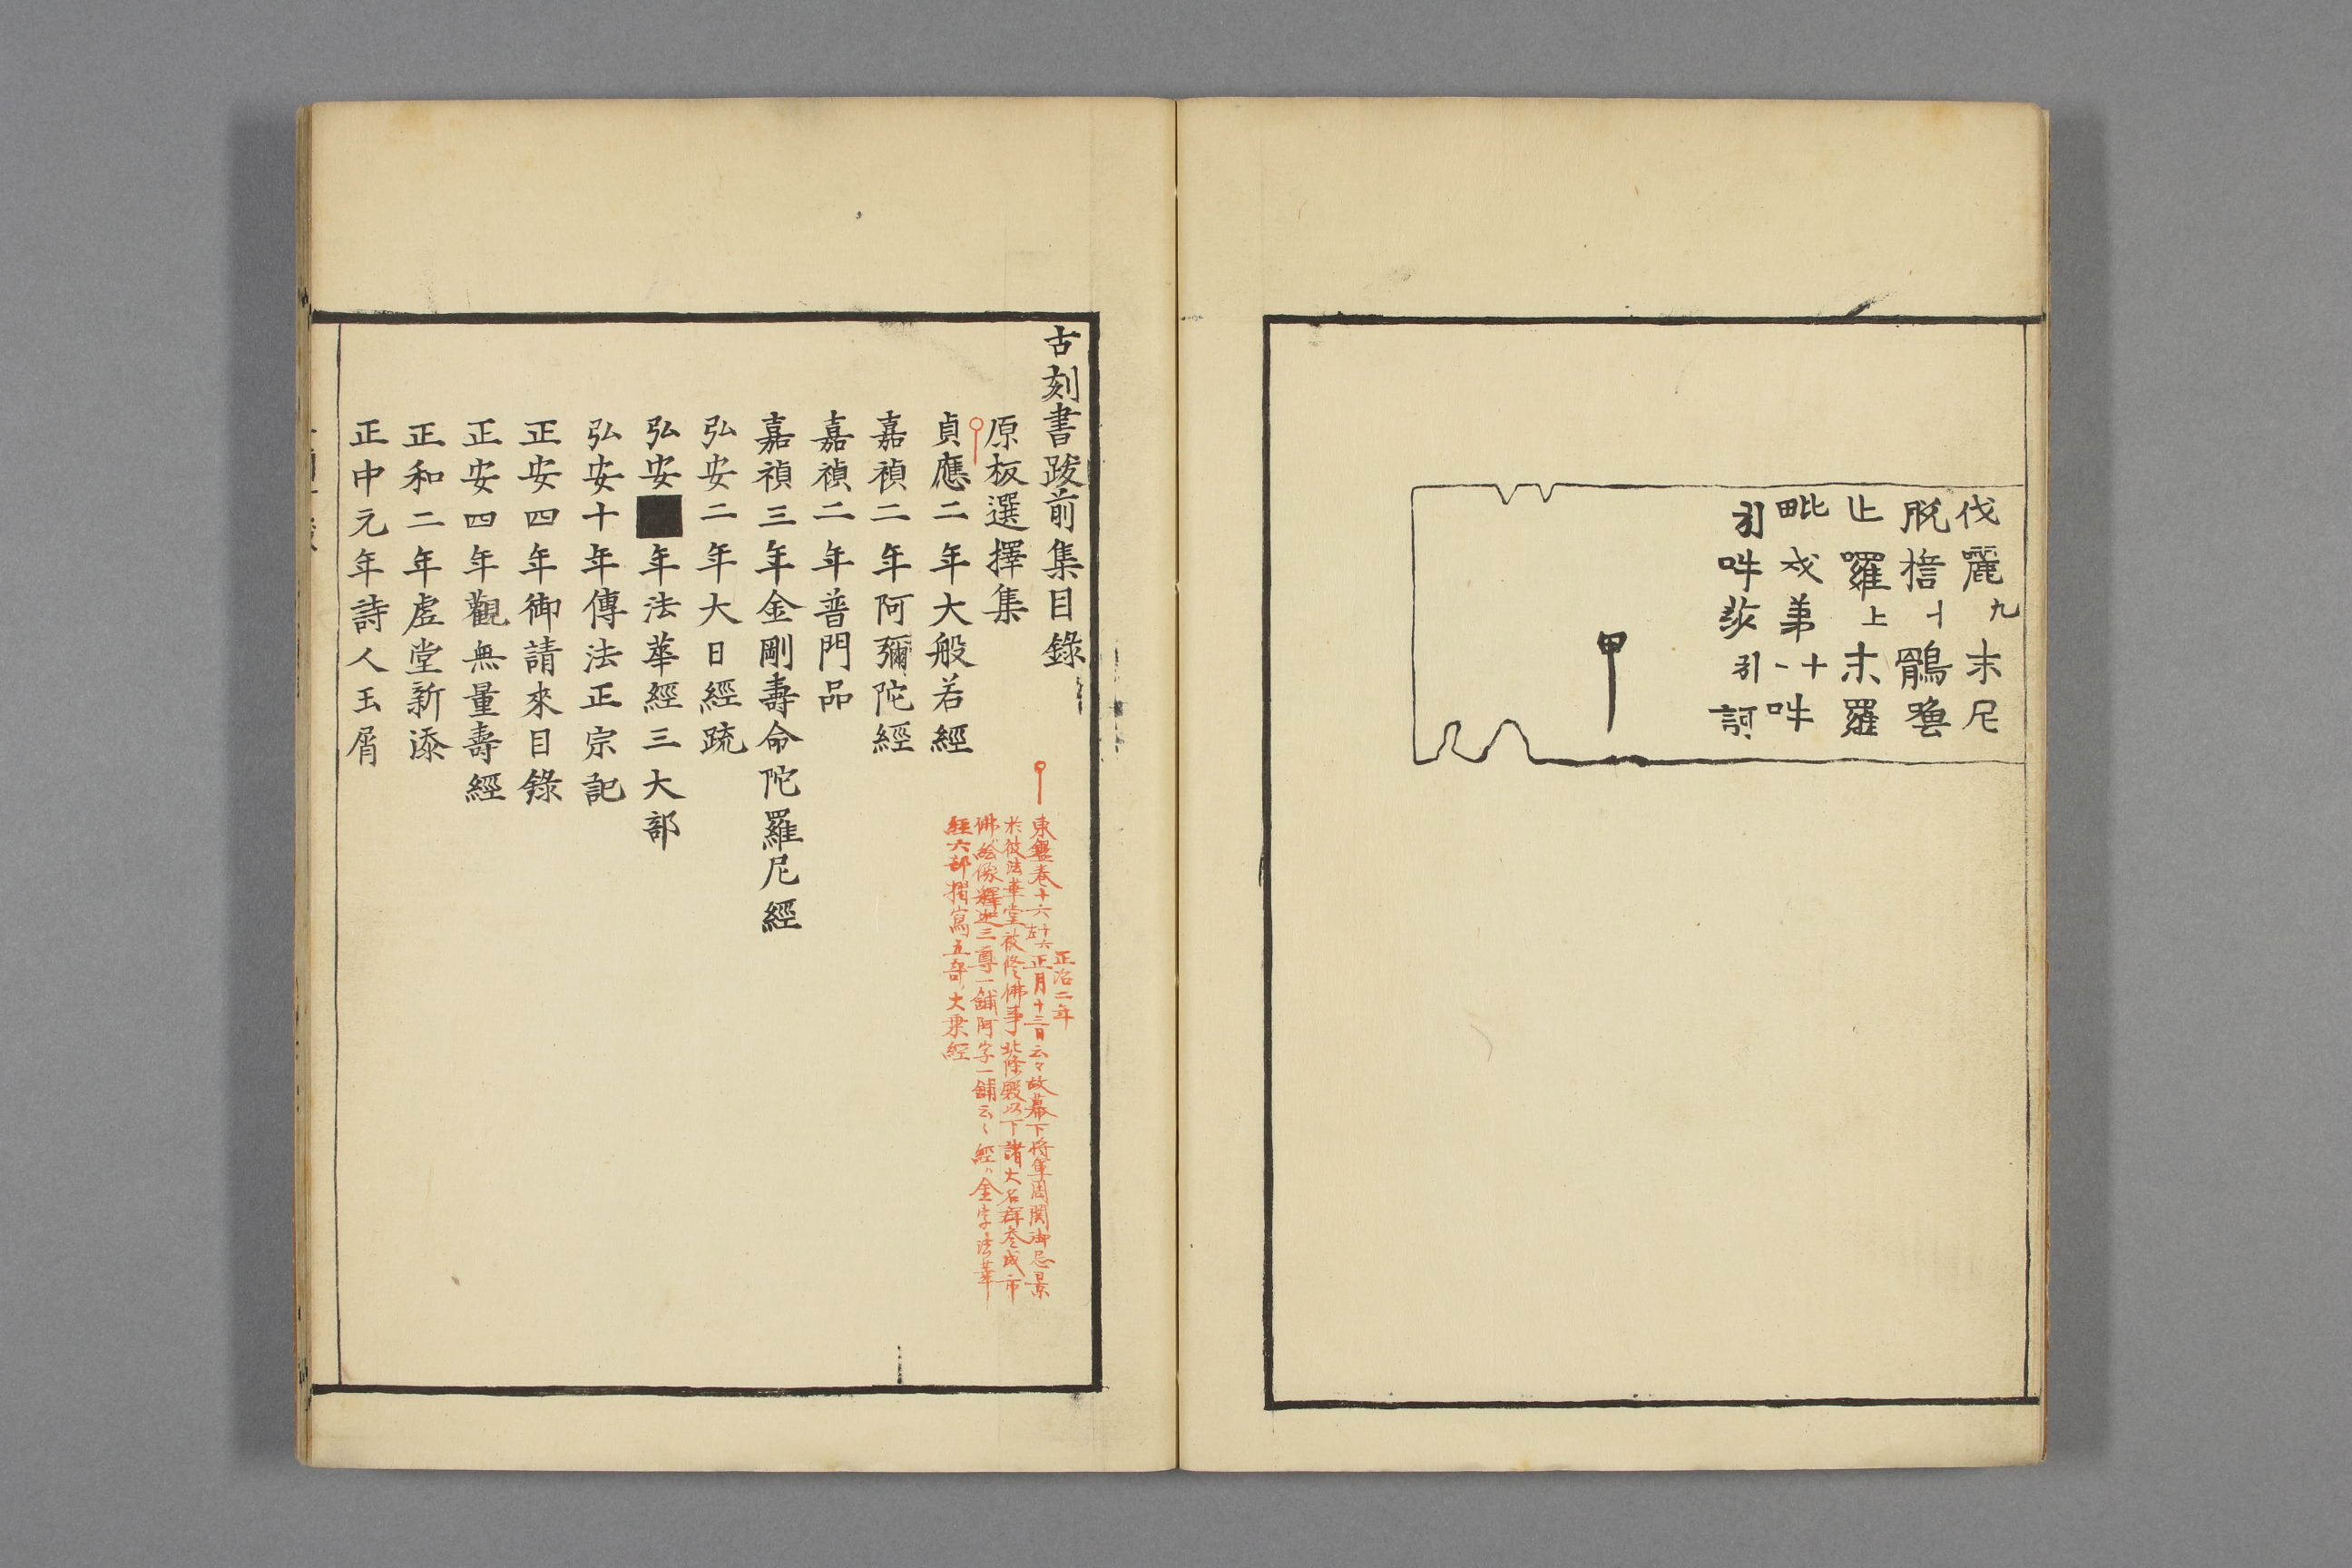 伐麗九末尼
脱㮇 鶻
啰上末羅
毗戎弟十一吽
引吽莎引訶
甲
古刻書跋前集目錄
原板選擇集
貞應二年大般若經
嘉禎二年阿彌陀經
嘉禎二年普門品
嘉禎三年金剛壽命陀羅尼經
弘安二年大日經疏
弘安■年法華經三大部
弘安十年傳法正宗記
正安四年御請來目錄
正安四年觀無量壽經
正和二年虛堂新添
正中元年詩人玉屑
正治二年
東鑑卷十六十六左正月十三日云々故幕下將軍周闋御忌景
於彼法華堂被修佛事北條殿以下諸大名群參成市
佛ハ絵像釋迦三尊一鋪阿字一鋪云々經ハ金字法華
經六部摺寫五部ノ大乘經